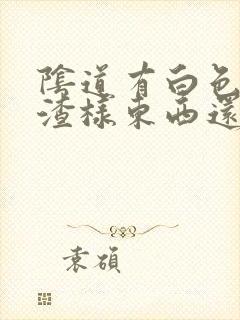 陰道有白色
渣樣東西還
袁碩